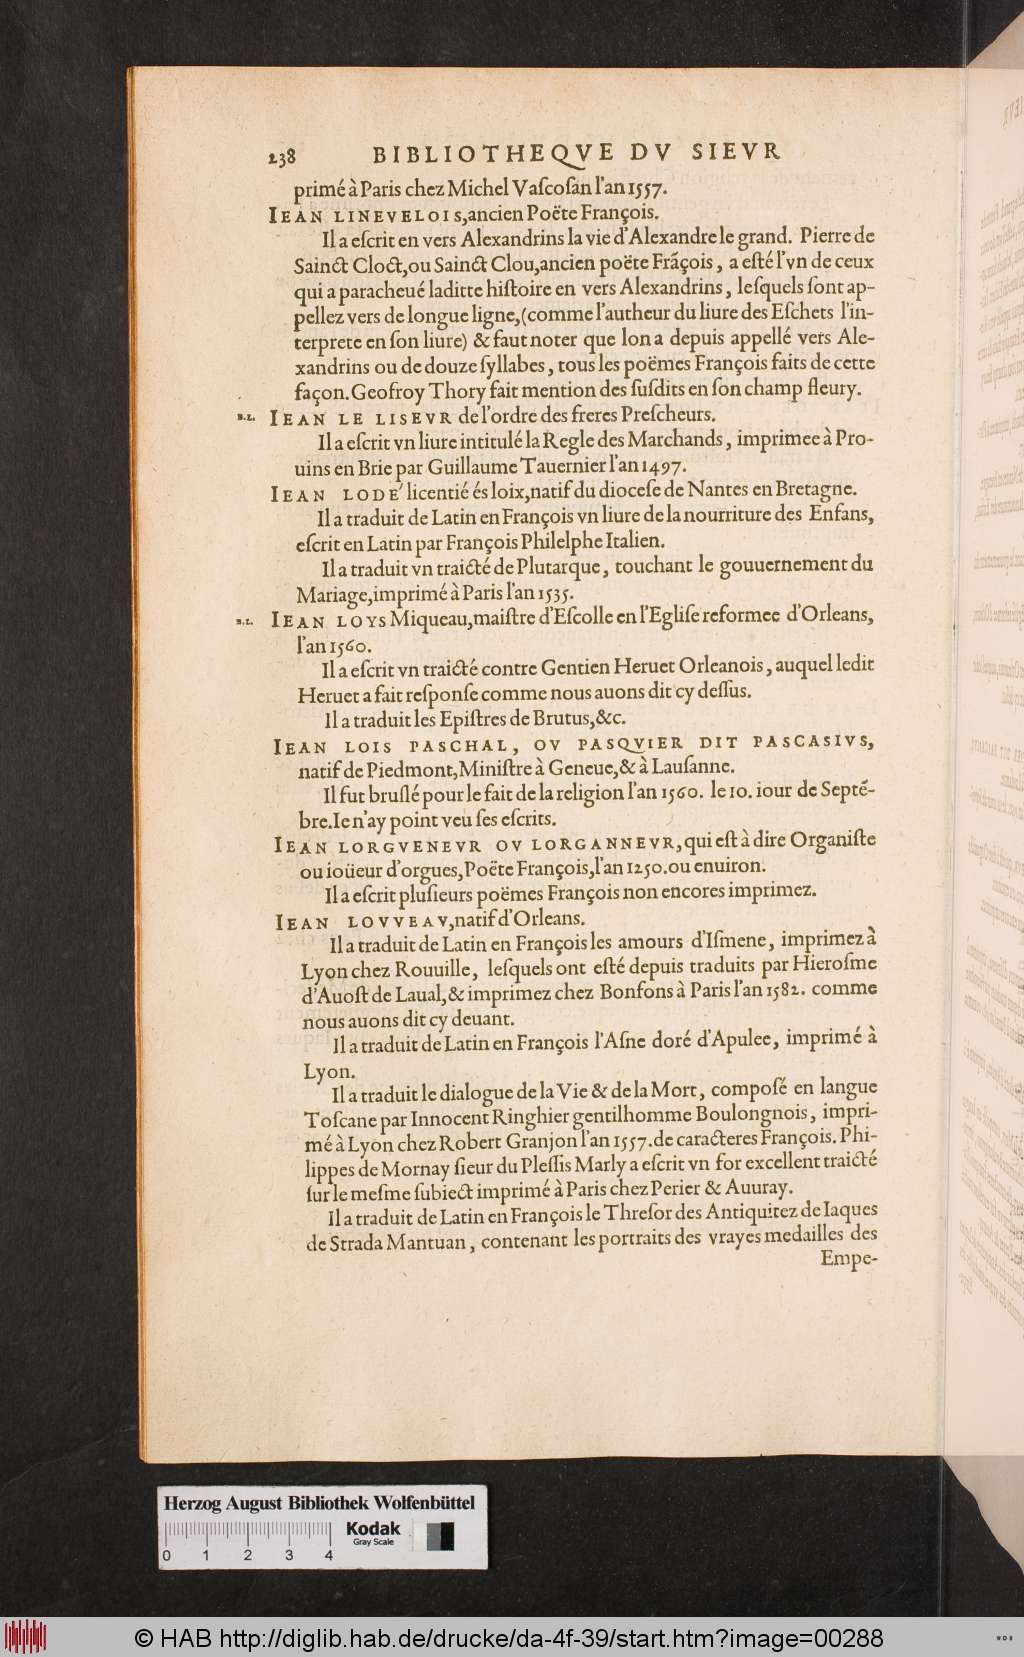 238 BIBLIOTHEQVE DV SIEVR
primé à Paris chez Michel Vaſcoſan l'an 1557.
IEAN LINEVELOIS, ancien Poëte François.
Il a eſcrit en vers Alexandrins la vie d'Alexandre le grand. Pierre de
Sainct Cloct, ou Sainct Clou, ancien poëte Frãçois, a eſté l'vn de ceux
qui a paracheué laditte hiſtoire en vers Alexandrins, leſquels ſont ap-
pellez vers de longue ligne, (comme l'autheur du liure des Eſchets l'in-
terprete en ſon liure) & faut noter que lon a depuis appellé vers Ale-
xandrins ou de douze ſyllabes, tous les poëmes François faits de cette
façon. Geofroy Thory fait mention des ſuſdits en ſon champ fleury.
B.L. IEAN LE LISEVR de l'ordre des freres Preſcheurs.
Il a eſcrit vn liure intitulé la Regle des Marchands, imprimee à Pro-
uins en Brie par Guillaume Tauernier l'an 1497.
IEAN LODÉ licentié és loix, natif du dioceſe de Nantes en Bretagne.
Il a traduit de Latin en François vn liure de la nourriture des Enfans,
eſcrit en Latin par François Philelphe Italien.
Il a traduit vn traicté de Plutarque, touchant le gouuernement du
Mariage, imprimé à Paris l'an 1535.
B.L. IEAN LOYS Miqueau, maiſtre d'Eſcolle en l'Egliſe reformee d'Orleans,
l'an 1560.
Il a eſcrit vn traicté contre Gentien Heruet Orleanois, auquel ledit
Heruet a fait reſponſe comme nous auons dit cy deſſus.
Il a traduit les Epiſtres de Brutus, &c.
IEAN LOIS PASCHAL, OV PASQVIER DIT PASCASIVS,
natif de Piedmont, Miniſtre à Geneue, & à Lauſanne.
Il fut bruſlé pour le fait de la religion l'an 1560. le 10. iour de Septẽ-
bre. Ie n'ay point veu ſes eſcrits.
IEAN LORGVENEVR OV LORGANNEVR, qui eſt à dire Organiſte
ou ioüeur d'orgues, Poëte François, l'an 1250. ou enuiron.
Il a eſcrit pluſieurs poëmes François non encores imprimez.
IEAN LOVVEAV, natif d'Orleans.
Il a traduit de Latin en François les amours d'Iſmene, imprimez à
Lyon chez Rouuille, leſquels ont eſté depuis traduits par Hieroſme
d'Auoſt de Laual, & imprimez chez Bonfons à Paris l'an 1582. comme
nous auons dit cy deuant.
Il a traduit de Latin en François l'Aſne doré d'Apulee, imprimé à
Lyon.
Il a traduit le dialogue de la Vie & de la Mort, compoſé en langue
Toſcane par Innocent Ringhier gentilhomme Boulongnois, impri-
mé à Lyon chez Robert Granjon l'an 1557. de caracteres François. Phi-
lippes de Mornay ſieur du Pleſſis Marly a eſcrit vn for excellent traicté
ſur le meſme ſubiect imprimé à Paris chez Perier & Auuray.
Il a traduit de Latin en François le Threſor des Antiquitez de Iaques
de Strada Mantuan, contenant les portraits des vrayes medailles des
Empe-
Herzog August Bibliothek Wolfenbüttel
Kodak
Gray Scale
0 1 2 3 4
© HAB http://diglib.hab.de/drucke/da-4f-39/start.htm?image=00288